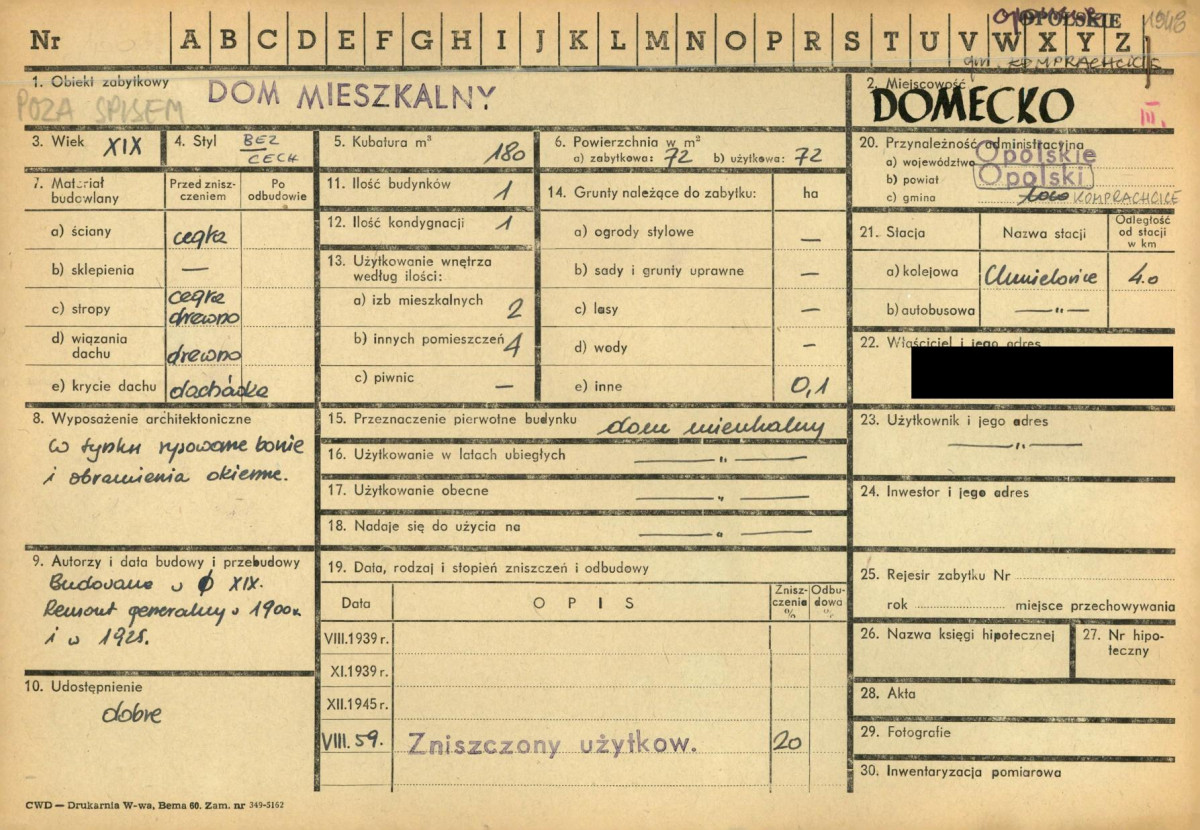 Nr A B C D E F G H I J K L M N O P R S T U V W X Y Z
OPOLSKIE
1948
gm. KOMPRACHCICE
1. Obiekt zabytkowy
DOM MIESZKALNY
POZA SPISEM
2. Miejscowość
DOMECKO
III.
3. Wiek XIX
4. Styl BEZ CECH
5. Kubatura m³ 180
6. Powierzchnia w m²
a) zabytkowa: 72 b) użytkowa: 72
7. Materiał budowlany
Przed zniszczeniem
Po odbudowie
a) ściany cegła
b) sklepienia —
c) stropy cegła drewno
d) wiązania dachu drewno
e) krycie dachu dachówka
8. Wyposażenie architektoniczne
W tynku rysowane bonie
i obramienia okienne.
9. Autorzy i data budowy i przebudowy
Budowano w XIX.
Remont generalny w 1900 r.
i w 1925.
10. Udostępnienie
dobre
11. Ilość budynków 1
12. Ilość kondygnacji 1
13. Użytkowanie wnętrza
według ilości:
a) izb mieszkalnych 2
b) innych pomieszczeń 4
c) piwnic —
14. Grunty należące do zabytku: ha
a) ogrody stylowe —
b) sady i grunty uprawne —
c) lasy —
d) wody —
e) inne 0,1
15. Przeznaczenie pierwotne budynku dom mieszkalny
16. Użytkowanie w latach ubiegłych — „ —
17. Użytkowanie obecne — „ —
18. Nadaje się do użycia na — „ —
19. Data, rodzaj i stopień zniszczeń i odbudowy
Data OPIS Zniszczenia % Odbudowa %
VIII.1939 r.
XI.1939 r.
XII.1945 r.
VIII. 59. Zniszczony użytkow. 20
20. Przynależność administracyjna
a) województwo Opolskie
b) powiat Opolski
c) gmina loco KOMPRACHCICE
21. Stacja Nazwa stacji Odległość od stacji w km
a) kolejowa Chmielowice 4.0
b) autobusowa — „ —
22. Właściciel i jego adres
23. Użytkownik i jego adres
— „ —
24. Inwestor i jego adres
25. Rejestr zabytku Nr
rok miejsce przechowywania
26. Nazwa księgi hipotecznej
27. Nr hipoteczny
28. Akta
29. Fotografie
30. Inwentaryzacja pomiarowa
CWD — Drukarnia W-wa, Bema 60. Zam. nr 349-5162